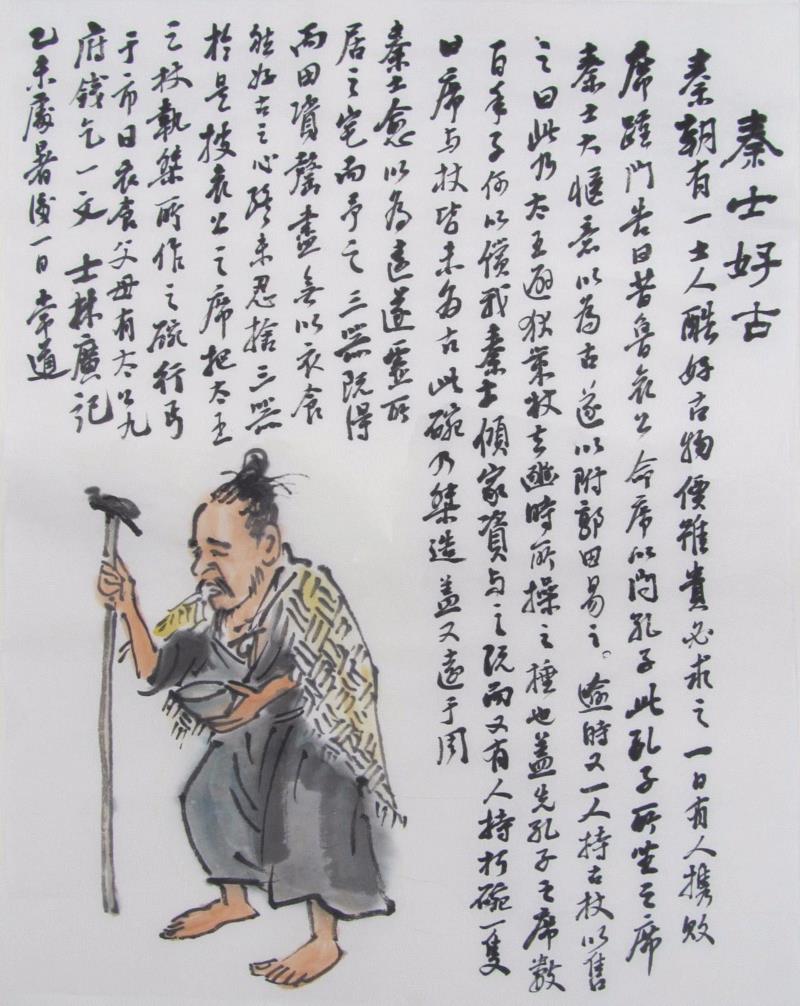 秦士好古
秦朝有一士人酷好古物價雖貴必求之一日有人攜敗
席踵門告曰昔魯哀公命席以問孔子此孔子所坐之席
秦士大愜意以為古遂以附郭田易之。逾時又一人持古杖以售
之曰此乃太王避狄策杖去豳時所操之棰也蓋先孔子之席數
百年子何以償我秦士傾家資与之既而又有人持朽碗一隻
曰席与杖皆未為古此碗乃桀造蓋又遠于周
秦士愈以為遠遂虛所
居之宅而予之三器既得
而田資罄盡無以衣食
然好古之心終未忍捨三器
於是披哀公之席把太王
之杖執桀所作之碗行丐
于市曰衣食父母有太公九
府錢乞一文 士林廣記
乙未處暑後一日 常道